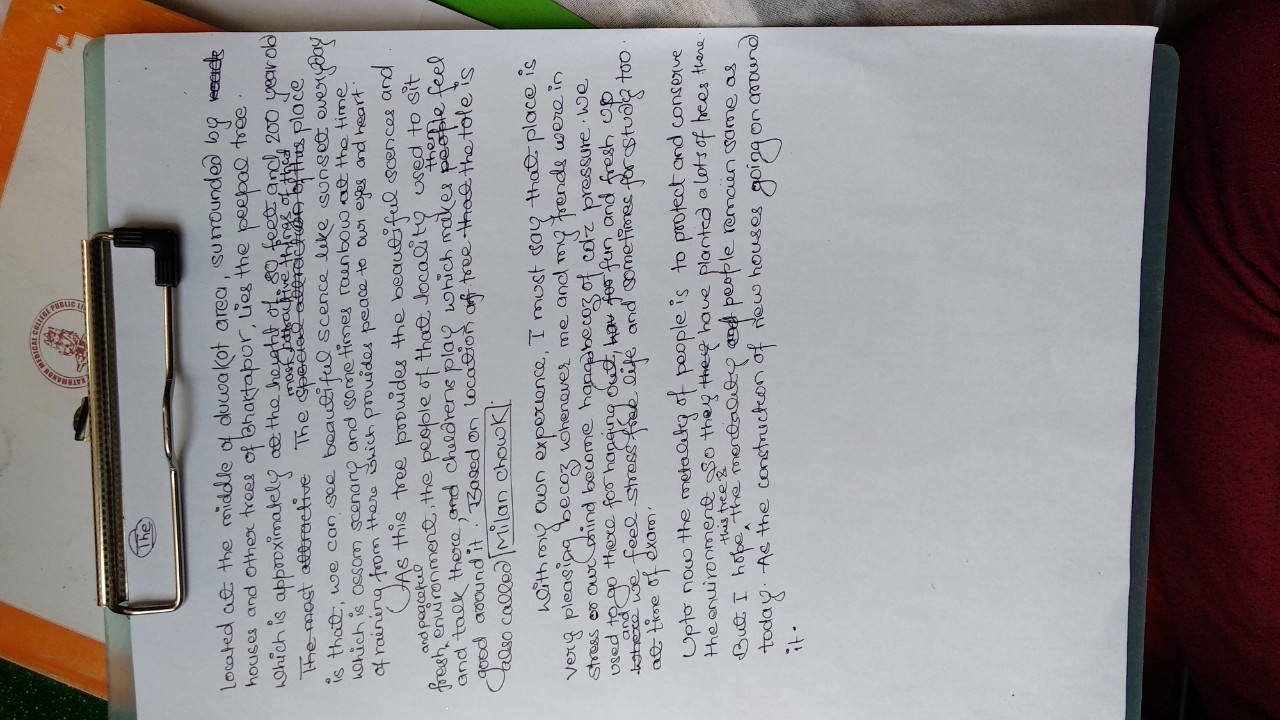 The
Located at the middle of duwakot area, surrounded by
houses and other trees of Bhaktapur, lies the peepal tree.
which is approximately at the height of 80 feet and 200 year old
most attractive things of this
The most attractive The special attraction of this place
is that, we can see beautiful scence like sunset everyday
which is ossom scenary and sometimes rainbow at the time
of raining from there which provides peace to our eyes and heart.
As this tree provides the beautiful scences and
and peaceful
fresh environment, the people of that locality used to sit
them
and talk there, and childrens play which makes people feel
good around it. Based on location of tree that the tole is
also called Milan chowk.
With my own experience, I must say that place is
very pleasing becoz whenever me and my friends were in
stress or our mind become hang becoz of colz pressure. we
used to go there for hanging out, for fun and fresh up
and
where we feel stress free life and sometimes for study too.
at time of exam.
Upto now the metality of people is to protect and conserve
the environment so they they have planted alots of trees there.
this tree &
But I hope the mentality and people remain same as
today. As the construction of new houses going on around
it.
KATHMANDU MEDICAL COLLEGE PUBLIC